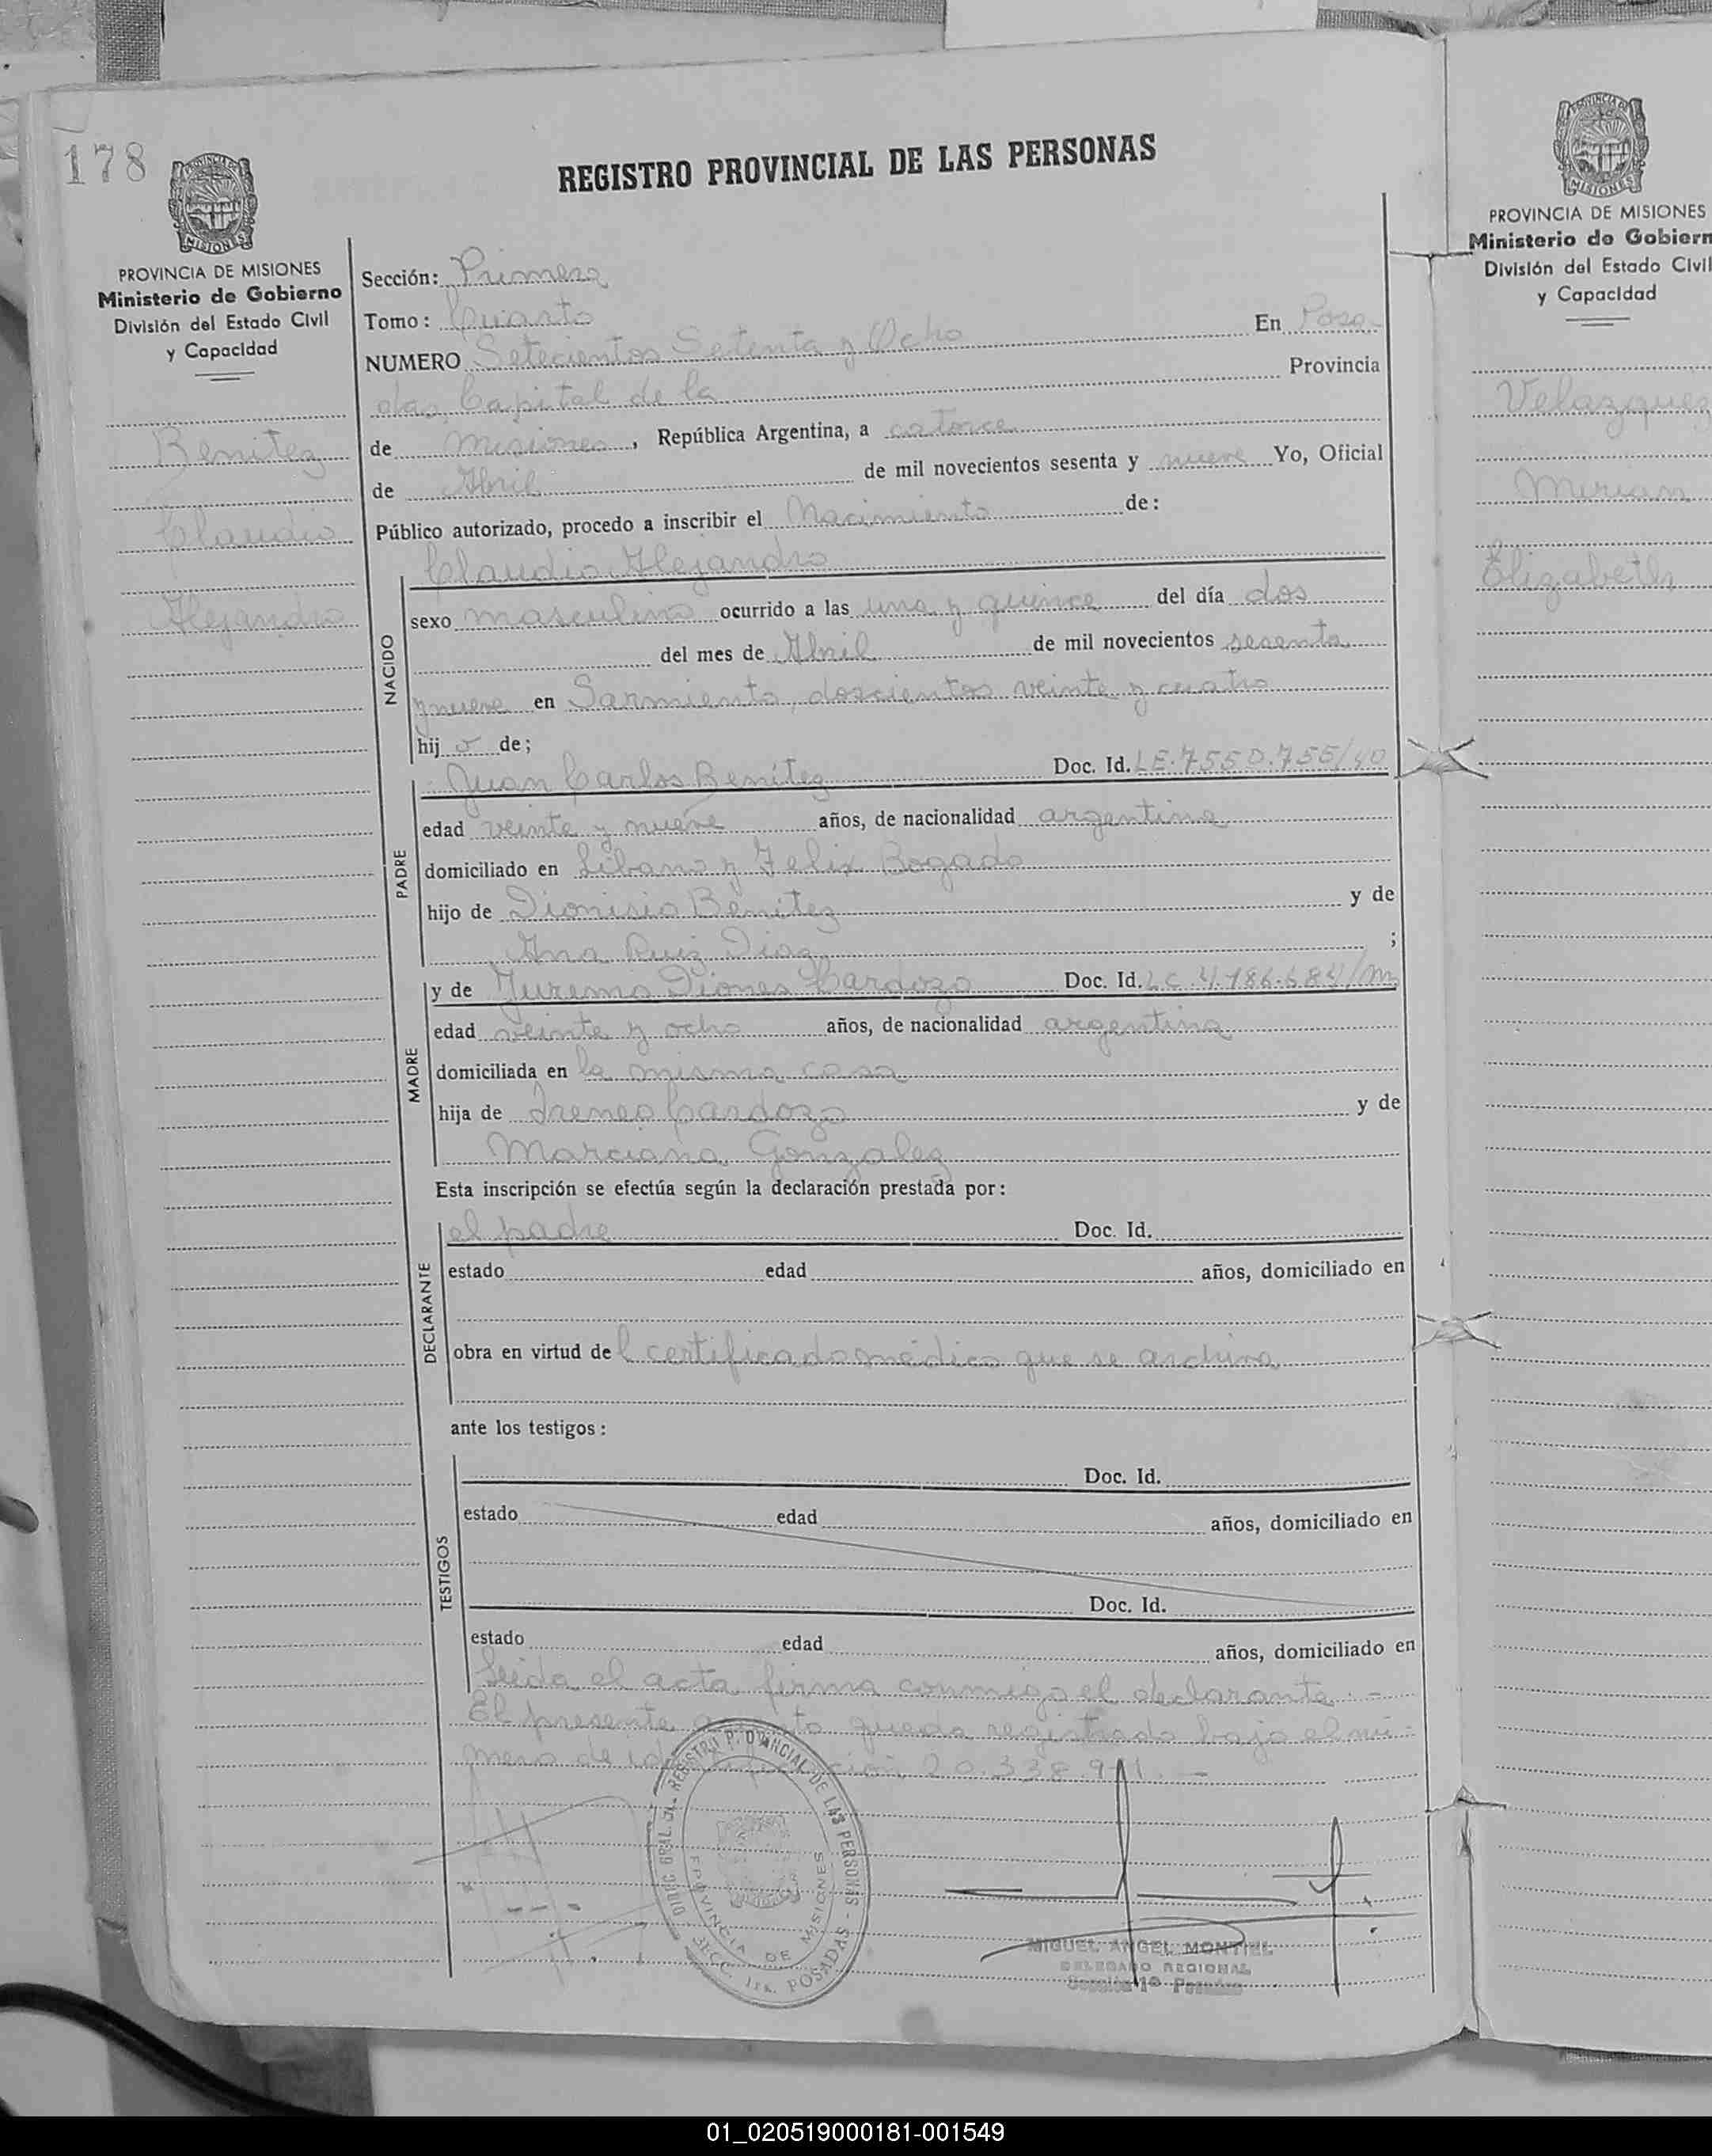 178
REGISTRO PROVINCIAL DE LAS PERSONAS
PROVINCIA DE MISIONES
Ministerio de Gobierno
División del Estado Civil
y Capacidad
Benitez
Claudio
Alejandro
Sección: Primera
Tomo: Cuarto
NUMERO Setecientos Setenta y Ocho En Posa
das Capital de la Provincia
de Misiones, República Argentina, a catorce
de Abril de mil novecientos sesenta y nueve Yo, Oficial
Público autorizado, procedo a inscribir el Nacimiento de:
Claudio Alejandro
NACIDO
sexo masculino ocurrido a las una y quince del día dos
del mes de Abril de mil novecientos sesenta
y nueve en Sarmiento, doscientos veinte y cuatro
hij o de;
Juan Carlos Benitez Doc. Id. LE.7550.755/40
PADRE
edad veinte y nueve años, de nacionalidad argentina
domiciliado en Libano y Felix Bogado
hijo de Dionisio Benitez y de
Ana Ruiz Diaz ;
MADRE
y de Jurema Diones Cardozo Doc. Id. LC.4.186.684/Ms
edad veinte y ocho años, de nacionalidad argentina
domiciliada en la misma casa
hija de Ireneo Cardozo y de
Marciana Gonzalez
Esta inscripción se efectúa según la declaración prestada por:
DECLARANTE
el padre Doc. Id.
estado edad años, domiciliado en
obra en virtud de l certificado médico que se archiva
ante los testigos:
TESTIGOS
Doc. Id.
estado edad años, domiciliado en
Doc. Id.
estado edad años, domiciliado en
Leida el acta firma conmigo el declarante.-
El presente queda registrado bajo el nú-
mero de identificación 20.338.911.-
DIREC. GRAL. DEL REGISTRO PROVINCIAL DE LAS PERSONAS - SECC. 1ra. POSADAS
PROVINCIA DE MISIONES
MIGUEL ANGEL MONTIEL
DELEGADO REGIONAL
Sección 1ª Posadas
PROVINCIA DE MISIONES
Ministerio de Gobiern
División del Estado Civil
y Capacidad
Velazquez
Mirian
Elizabeth
01_020519000181-001549